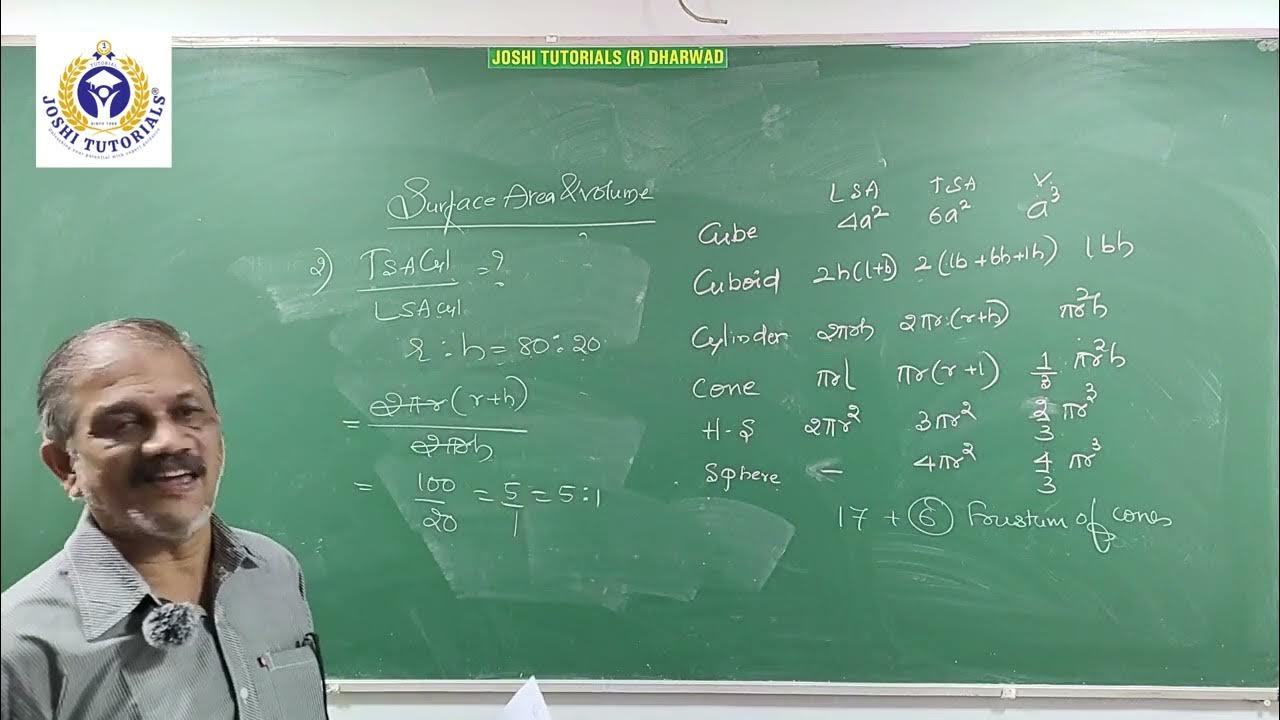 JOSHI TUTORIALS (R) DHARWAD
1
TUTORIAL
SINCE 1988
JOSHI TUTORIALS®
Surface Area & volume
2) TSA Cyl / LSA Cyl = ?
r : h = 80 : 20
= 2πr (r+h) / 2πrh
= 100/20 = 5/1 = 5:1
LSA TSA V.
Cube 4a² 6a² a³
Cuboid 2h(l+b) 2(lb+bh+lh) lbh
Cylinder 2πrh 2πr(r+h) πr²h
Cone πrl πr(r+l) 1/3 πr²h
H-S 2πr² 3πr² 2/3 πr³
Sphere ← – 4πr² 4/3 πr³
17 + 6 Frustum of cones